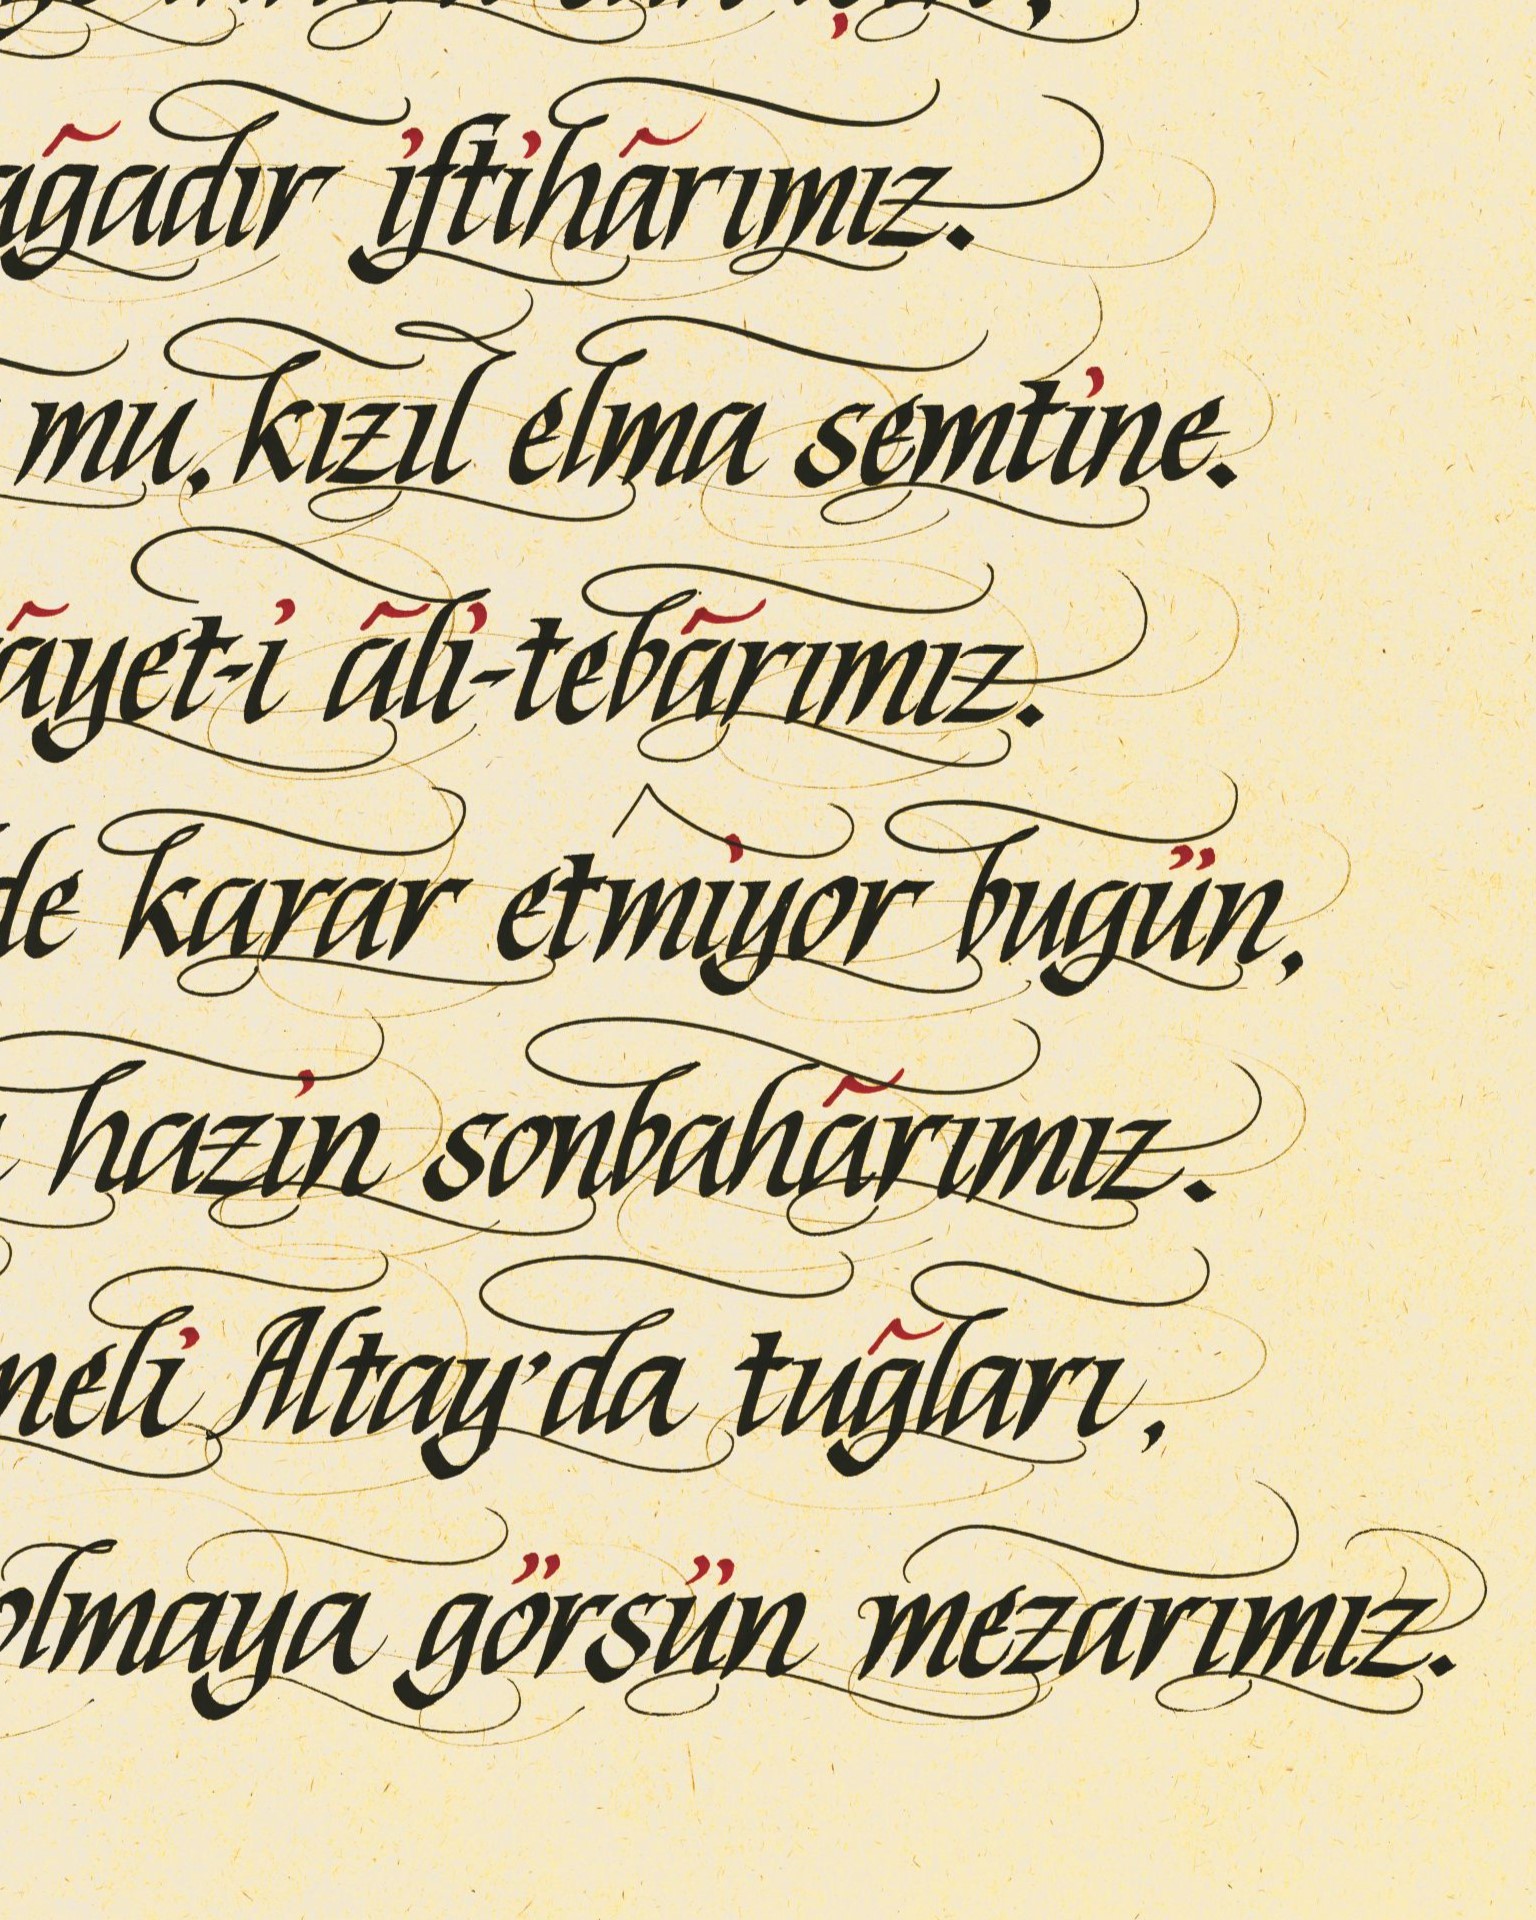 ağadır iftihârımız.
mu, kızıl elma semtine.
âyet-i âli-tebârımız.
de karar etmiyor bugün,
hazin sonbahârımız.
neli Altay'da tuğları,
olmaya görsün mezarımız.